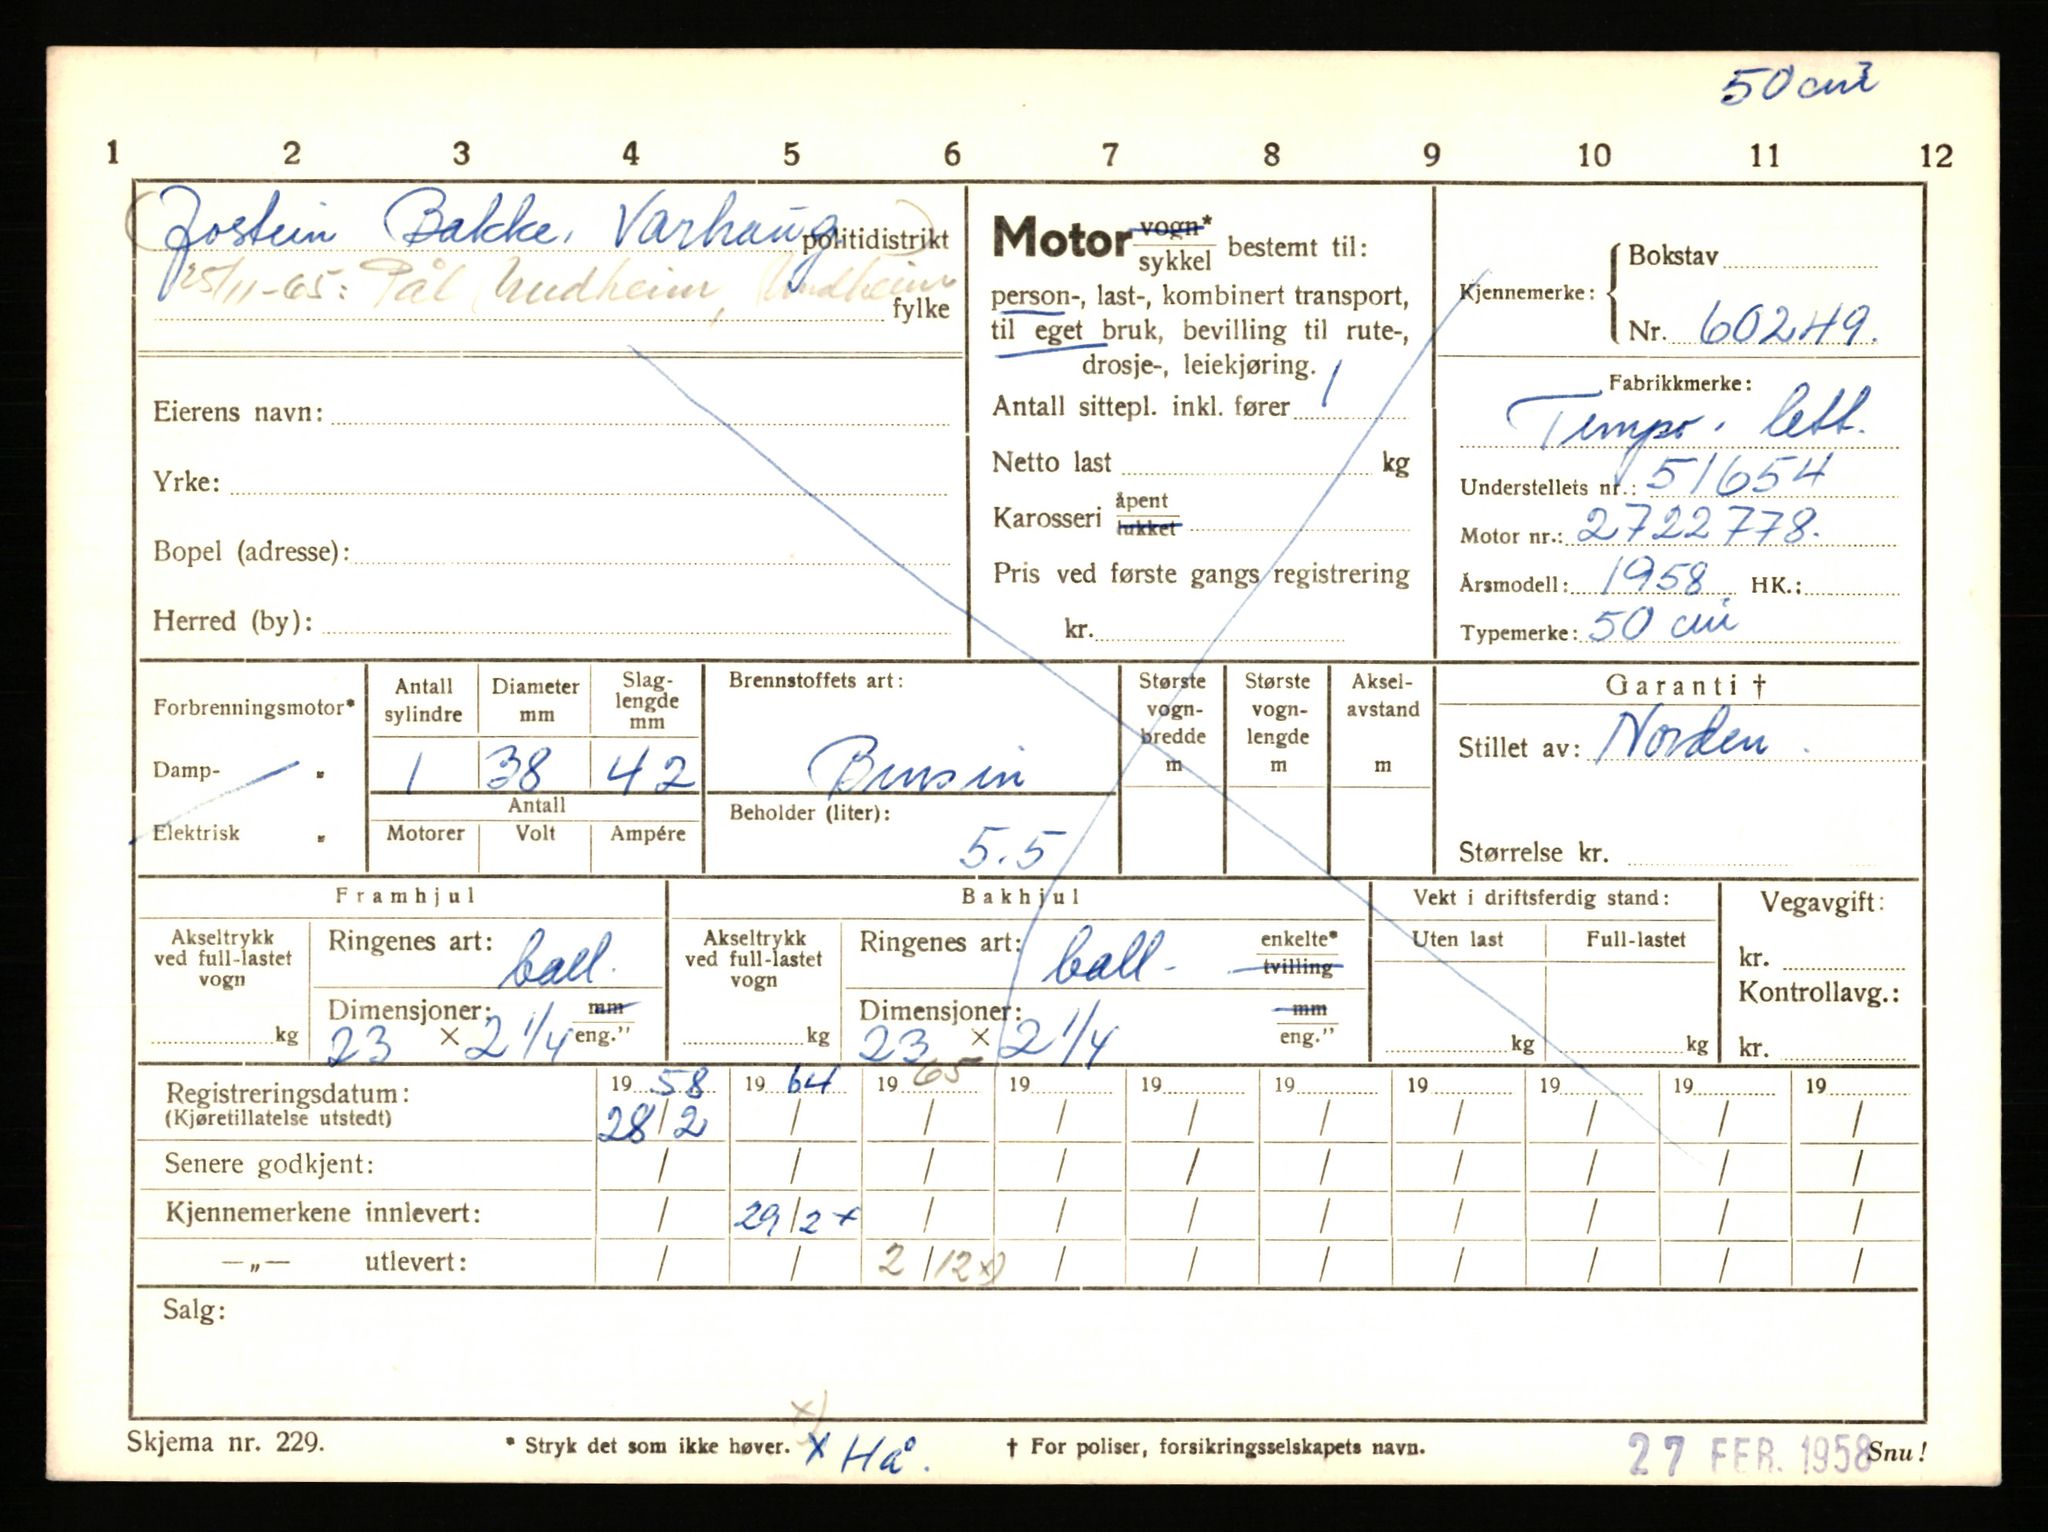 50 cm³
1 2 3 4 5 6 7 8 9 10 11 12
(Jostein Bakke, Varhaug) politidistrikt
25/11-65: Pål Undheim, Undheim
fylke
Eierens navn:
Yrke:
Bopel (adresse):
Herred (by):
Motor vogn* / sykkel bestemt til:
person-, last-, kombinert transport,
til eget bruk, bevilling til rute-,
drosje-, leiekjøring.
Antall sittepl. inkl. fører 1
Netto last kg
Karosseri åpent / lukket
Pris ved første gangs registrering
kr.
Kjennemerke: Bokstav
Nr. 60249.
Fabrikkmerke:
Tempo. lett.
Understellets nr.: 51654
Motor nr.: 2722778.
Årsmodell: 1958 HK.:
Typemerke: 50 cm³
Forbrenningsmotor*
Damp- "
Elektrisk "
Antall sylindre
1
Diameter mm
38
Slag-lengde mm
42
Antall
Motorer Volt Ampére
Brennstoffets art:
Bensin
Beholder (liter):
5.5
Største vogn-bredde m
Største vogn-lengde m
Aksel-avstand m
Garanti †
Stillet av: Norden.
Størrelse kr.
Framhjul
Akseltrykk
ved full-lastet
vogn
kg
Ringenes art: ball.
Dimensjoner: mm / eng."
23 × 2 1/4
Bakhjul
Akseltrykk
ved full-lastet
vogn
kg
Ringenes art: ball- enkelte* / tvilling
Dimensjoner: mm / eng."
23 × 2 1/4
Vekt i driftsferdig stand:
Uten last Full-lastet
kg kg
Vegavgift:
kr.
Kontrollavg.:
kr.
Registreringsdatum: 19 58 19 64 19 65 19 19 19 19 19 19 19
(Kjøretillatelse utstedt) 28/2 / / / / / / / / /
Senere godkjent: / / / / / / / / / /
Kjennemerkene innlevert: / 29/2 x / / / / / / / /
—„— utlevert: / / 2/12 x) / / / / / / /
Salg:
x)
Skjema nr. 229. * Stryk det som ikke høver. x Hå. † For poliser, forsikringsselskapets navn. 27 FEB. 1958 Snu!